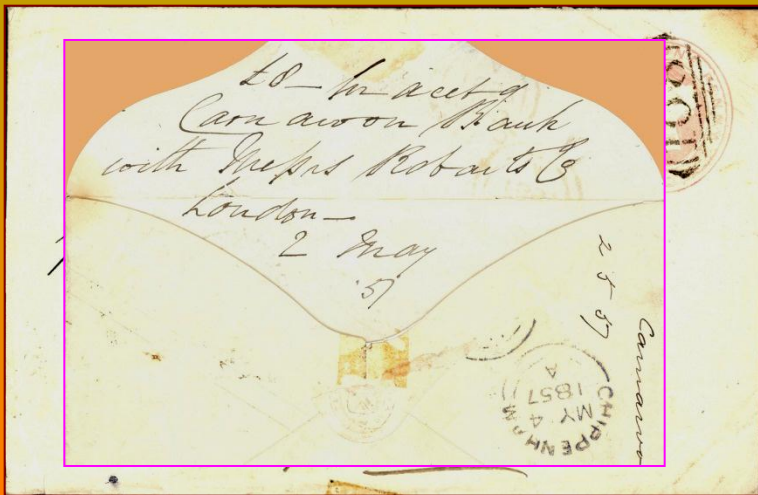 £8 - in acct of
Carnarvon Bank
with Messrs Robarts & Co
London -
2 May
57
2 5 57
Carnarvo
CHIPPENHAM
MY 4
1857
A
108